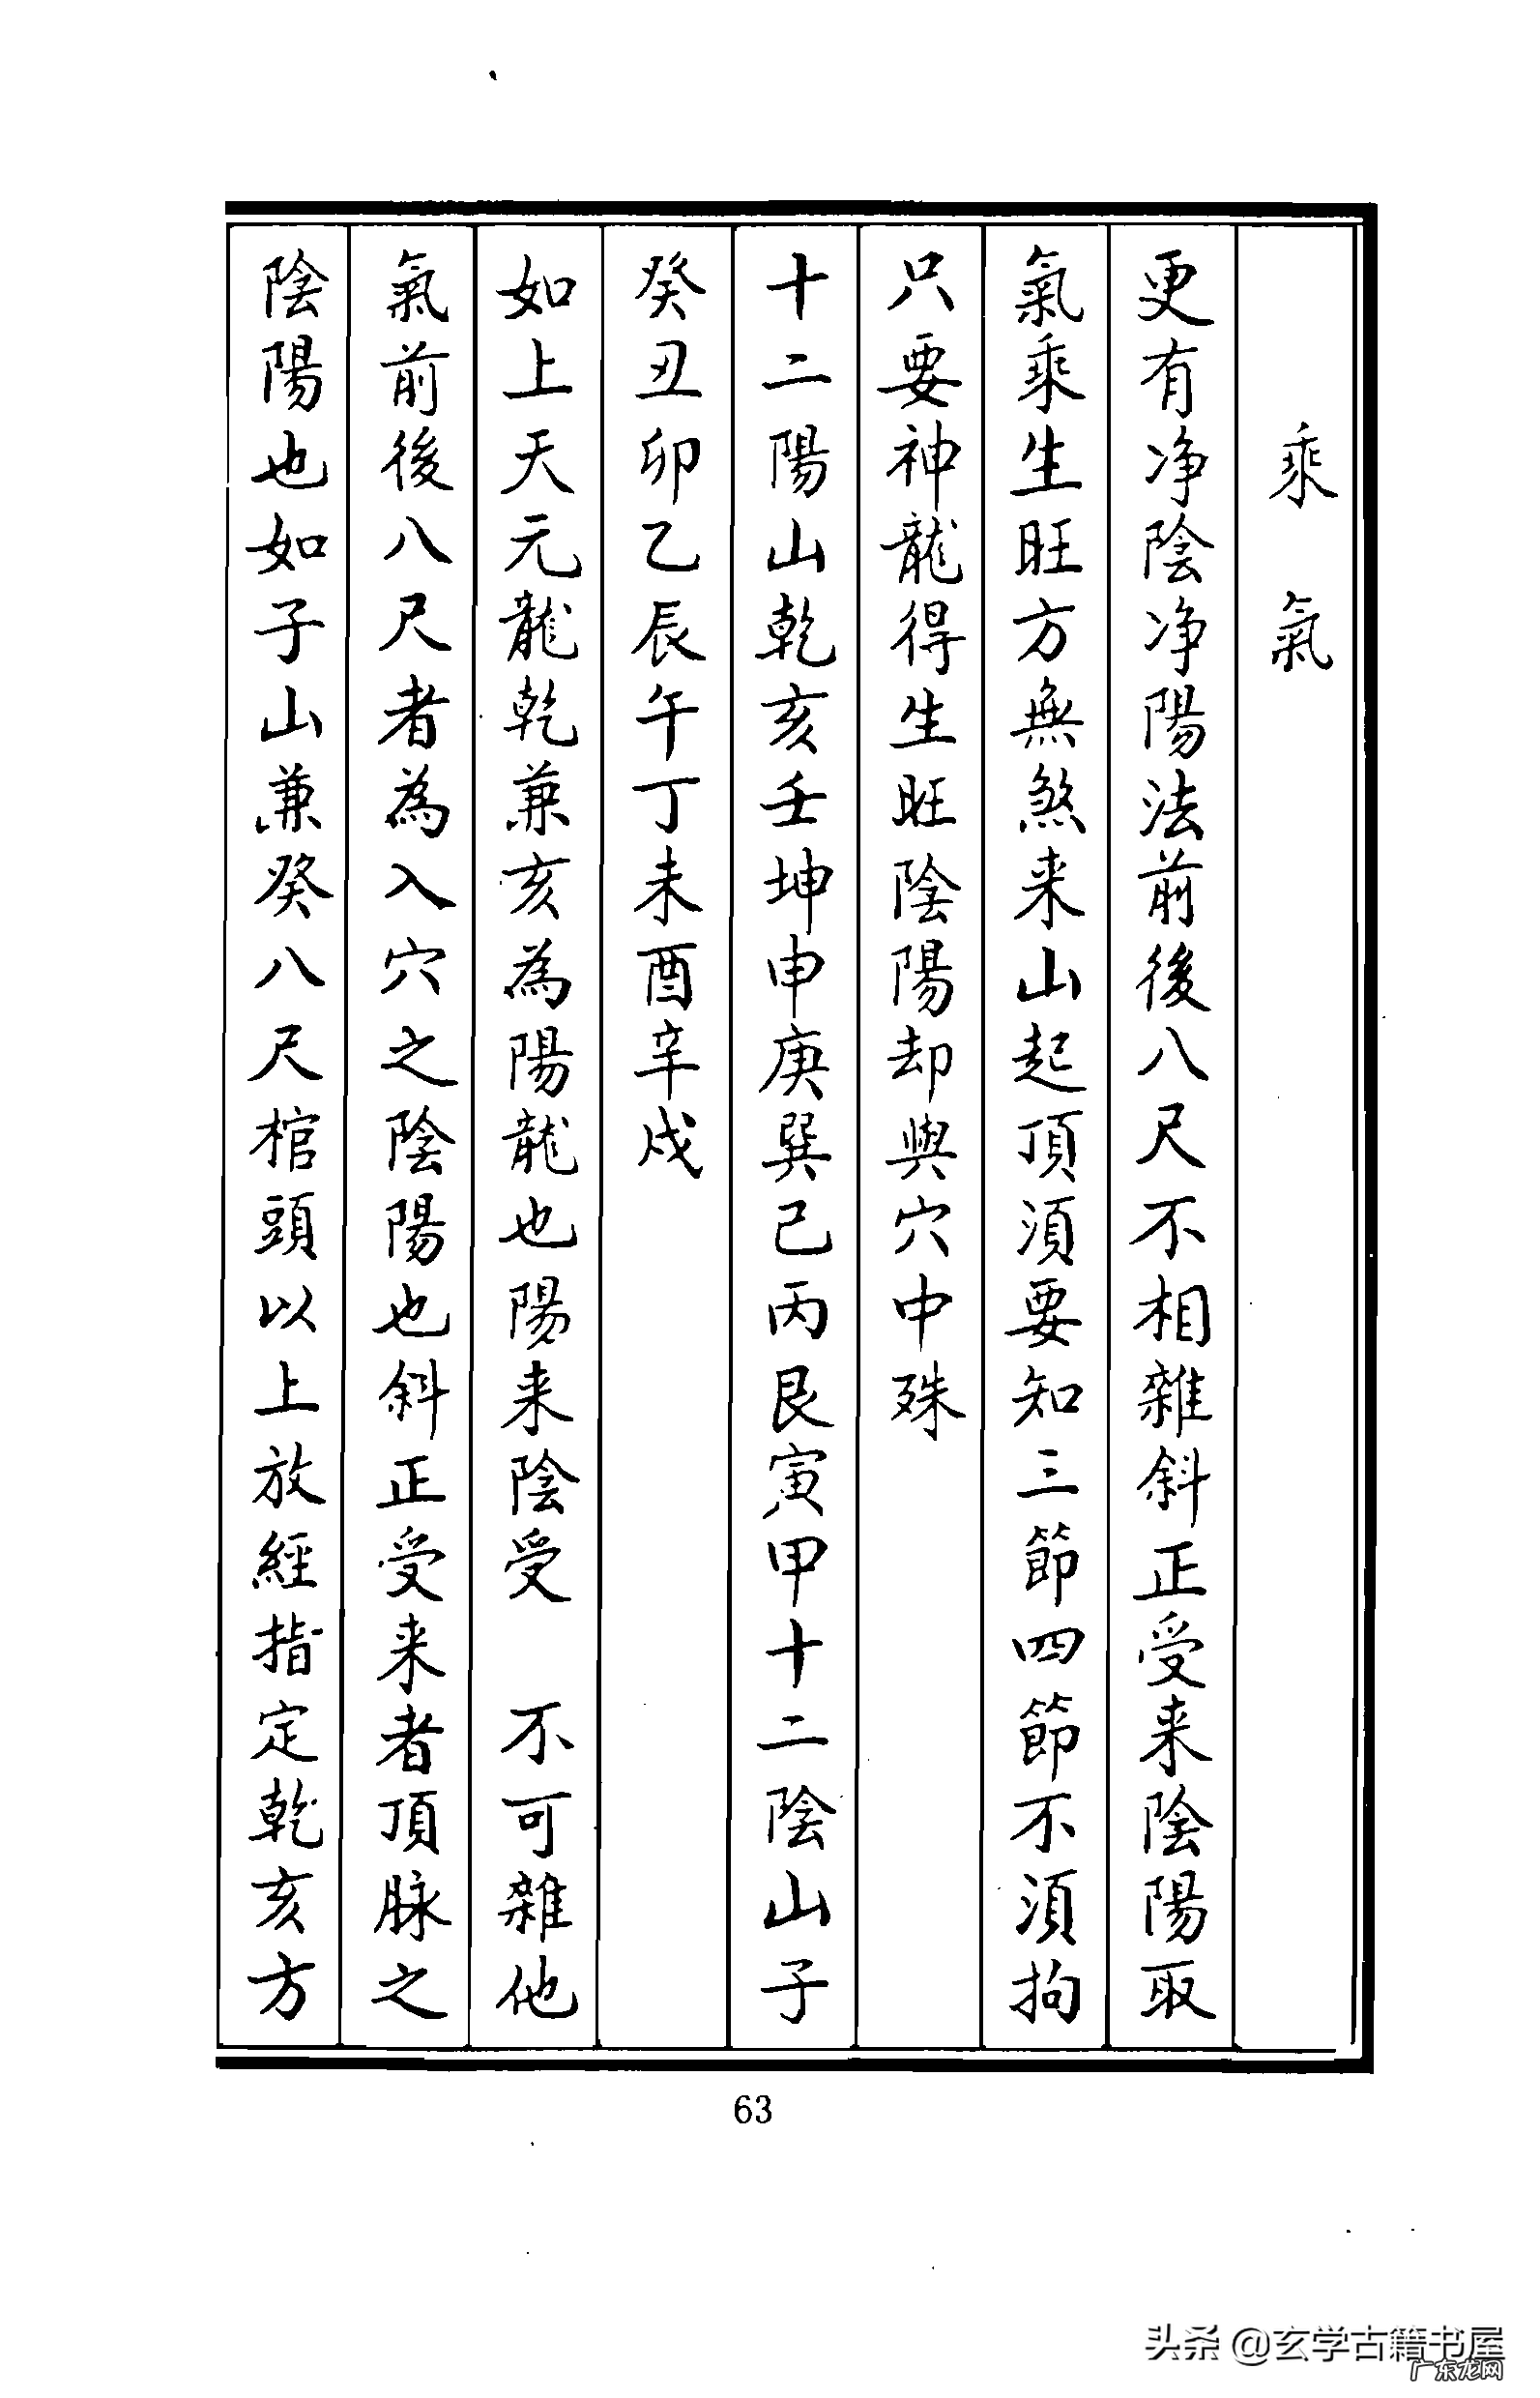 乘氣
更有净陰净陽法前後八尺不相雜斜正受来陰陽取
氣乘生旺方無煞来山起頂須要知三節四節不須拘
只要神龍得生旺陰陽却與穴中殊
十二陽山乾亥壬坤申庚巽己丙艮寅甲十二陰山子
癸丑卯乙辰午丁未酉辛戌
如上天元龍乾兼亥為陽龍也陽来陰受 不可雜他
氣前後八尺者為入穴之陰陽也斜正受来者頂脉之
陰陽也如子山兼癸八尺棺頭以上放經指定乾亥方
63
头条 @玄学古籍书屋
广东龙网